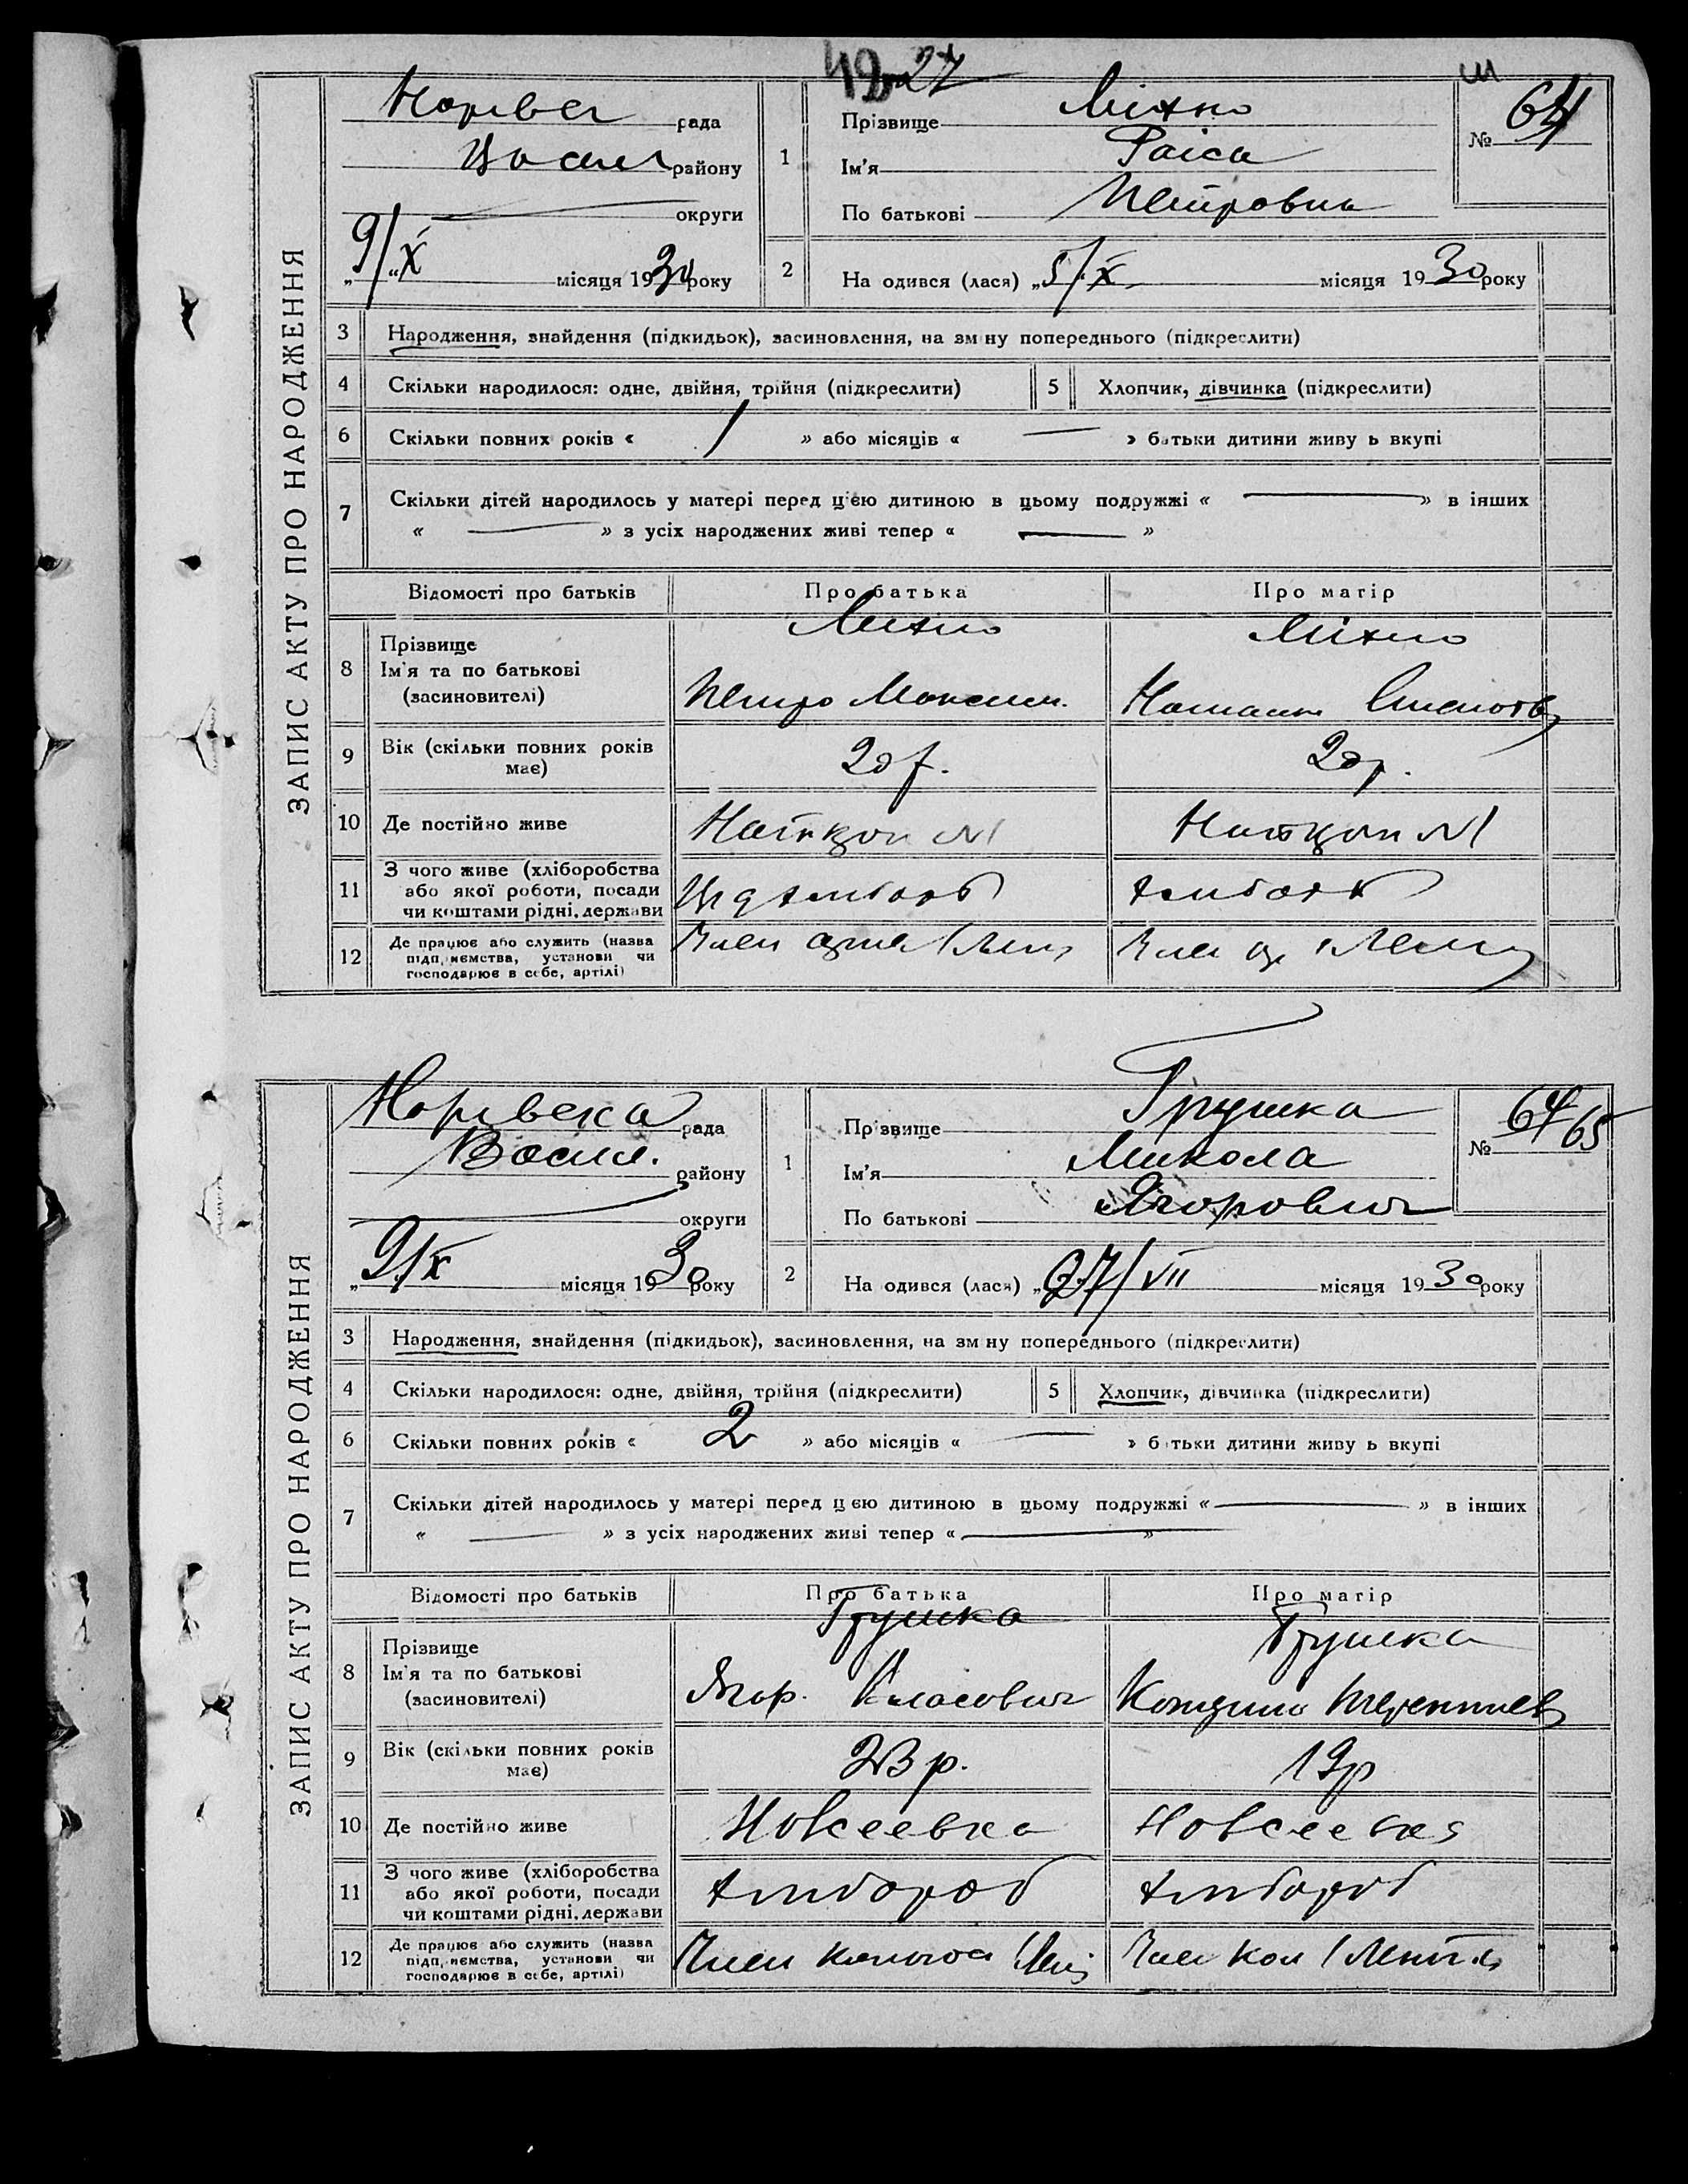 27
ЗАПИС АКТУ ПРО НАРОДЖЕННЯ
рада
району
округи
9/X місяця 1930 року
1
Прізвище Міхно
Ім'я Раіса
По батькові Петровна
№ 64
2 На одився (лася) „5/X місяця 1930 року
3 Народження, знайдення (підкидьок), засиновлення, на зм ну попереднього (підкреслити)
4 Скільки народилося: одне, двійня, трійня (підкреслити) 5 Хлопчик, дівчинка (підкреслити)
6 Скільки повних років « 1 » або місяців « — » батьки дитини живу ь вкупі
7 Скільки дітей народилось у матері перед цією дитиною в цьому подружжі « — » в інших
« — » з усіх народжених живі тепер « — »
Відомості про батьків Про батька Про матір
8 Прізвище Міхно Міхно
Ім'я та по батькові
(засновителі) Петро Максим.
9 Вік (скільки повних років має) 20 р. 20 р.
10 Де постійно живе
11 З чого живе (хліборобства або якої роботи, посади чи коштами рідні, держави
12 Де працює або служить (назва підприємства, установи чи господарює в себе, артілі) Член Член
ЗАПИС АКТУ ПРО НАРОДЖЕННЯ
рада
Васил. району
округи
9/X місяця 1930 року
1
Пр звище Грушка
Ім'я Микола
По батькові Ягорович
№ 64 65
2 На одився (лася) „27/VII місяця 1930 року
3 Народження, знайдення (підкидьок), засиновлення, на зм ну попереднього (підкреслити)
4 Скільки народилося: одне, двійня, трійня (підкреслити) 5 Хлопчик, дівчинка (підкреслити)
6 Скільки повних років « 2 » або місяців « — » б тьки дитини живу ь вкупі
7 Скільки дітей народилось у матері перед ц єю дитиною в цьому подружжі « — » в інших
« — » з усіх народжених живі тепер « — »
Відомості про батьків Про батька Про матір
8 Прізвище Грушка Грушка
Ім'я та по батькові
(засновителі) Ягор. Власович
9 Вік (скільки повних років має) 23 р. 19 р
10 Де постійно живе Новсеевка Новсеевка
11 З чого живе (хліборобства або якої роботи, посади чи коштами рідні, держави Хлибороб Хлибороб
12 Де працює або служить (назва підприємства, установи чи господарює в себе, артілі) Член Член кол